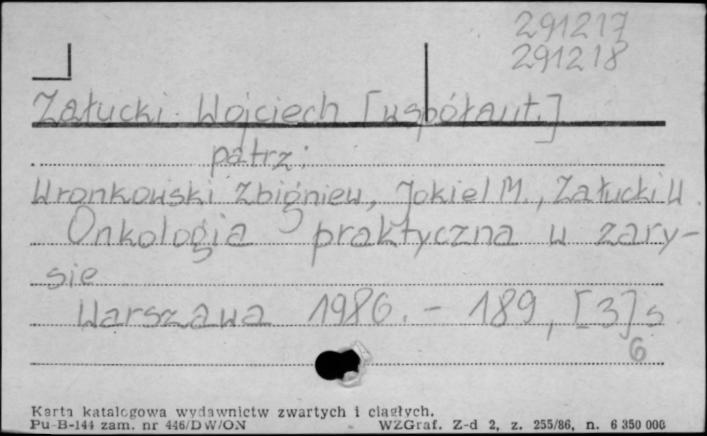 291217
291218
Załucki Wojciech [współaut.]
patrz:
Wronkowski Zbigniew, Jokiel M., Załucki W.
Onkologia praktyczna w zary-
sie
Warszawa 1986. - 189, [3] s
6
Karta katalogowa wydawnictw zwartych i ciągłych.
Pu-B-144 zam. nr 446/DW/ON WZGraf. Z-d 2, z. 255/86, n. 6 350 000